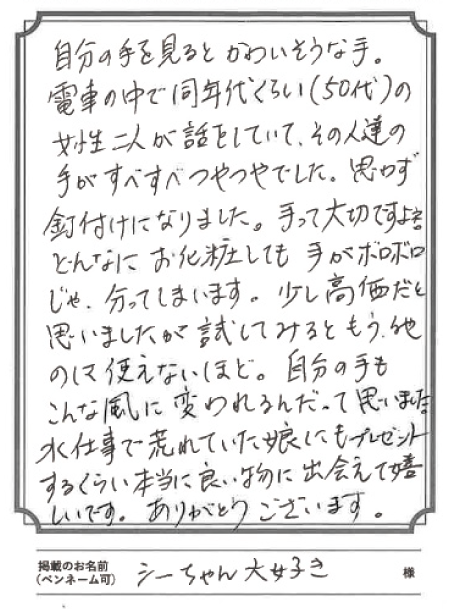 自分の手を見ると かわいそうな手。
電車の中で同年代くらい(50代)の
女性二人が話をしていて、その人達の
手がすべすべつやつやでした。思わず
釘付けになりました。手って大切ですよね
どんなに お化粧しても 手がボロボロ
じゃ、分ってしまいます。少し高価だと
思いましたが試してみるともう、他
のは使えないほど。自分の手も
こんな風に変われるんだって思いました
水仕事で荒れていた娘にもプレゼント
するくらい本当に良い物に出会えて嬉
しいです。ありがとうございます。
掲載のお名前
(ペンネーム可) シーちゃん大好き 様